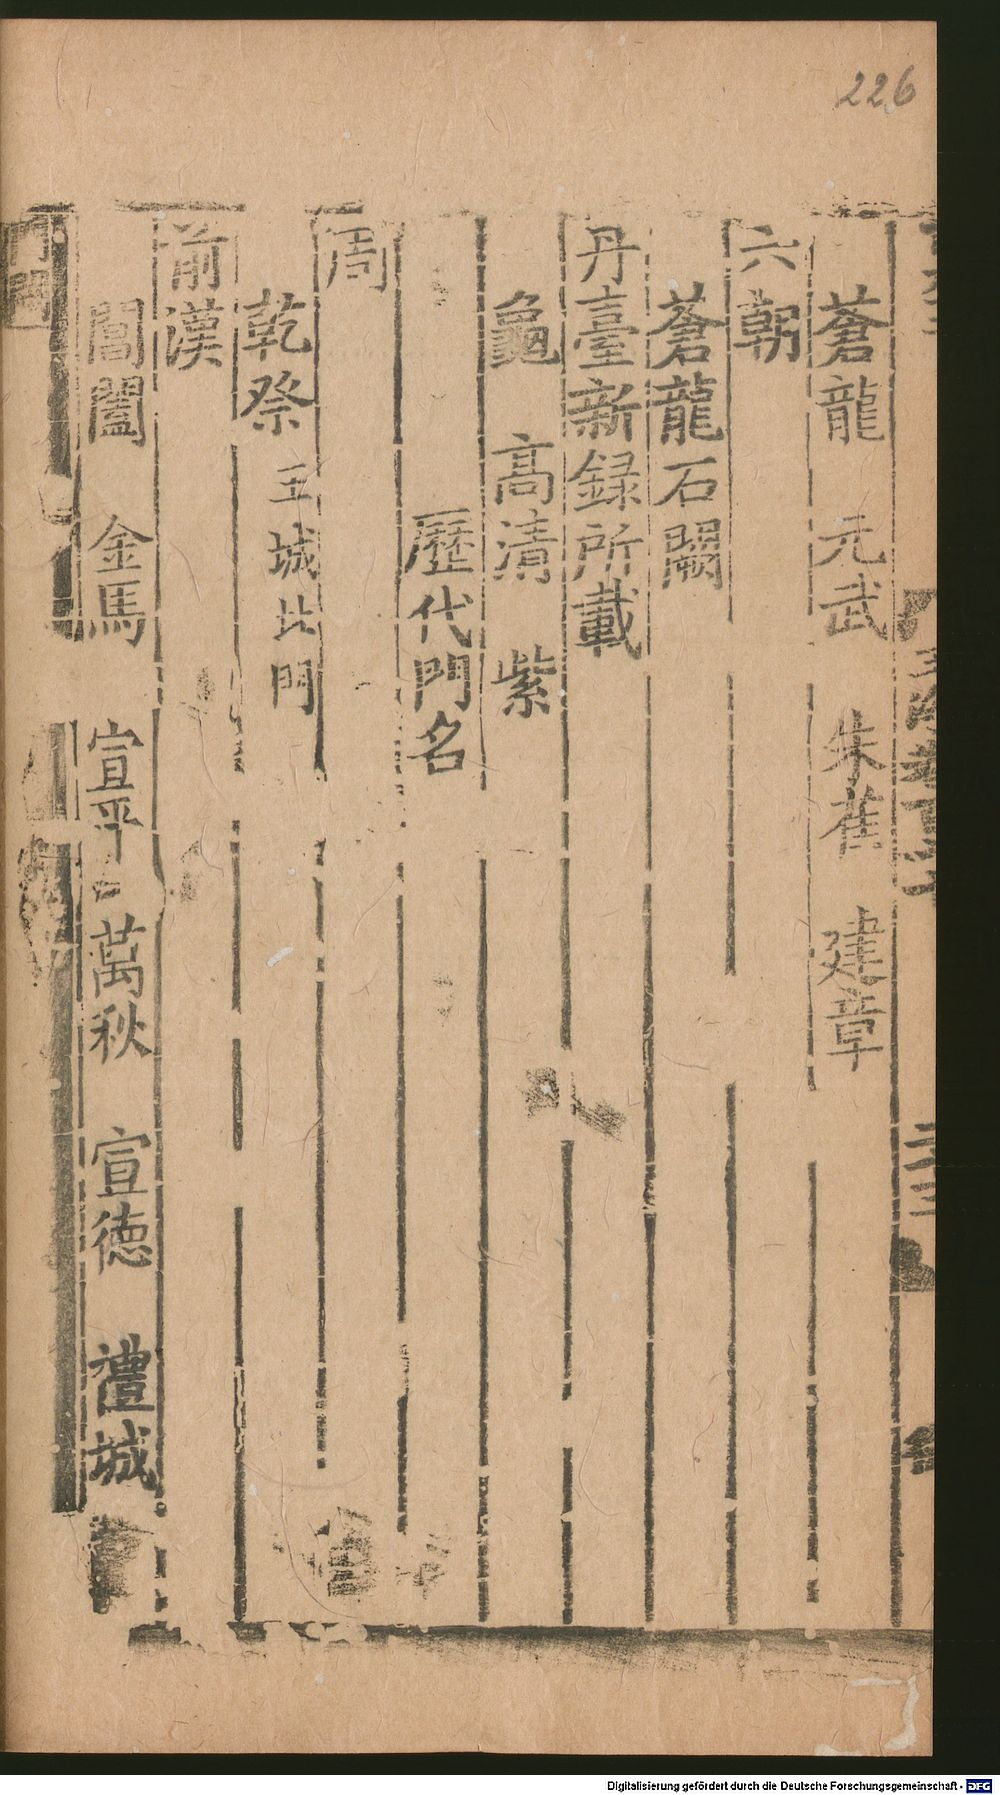 226
蒼龍 元武 朱雀 建章
六朝
蒼龍石闕
丹臺新録所載
龜 高清 紫
歷代門名
周
乾祭 王城北門
前漢
閶闔 金馬 宣平 萬秋 宣德 禮城
Digitalisierung gefördert durch die Deutsche Forschungsgemeinschaft - DFG